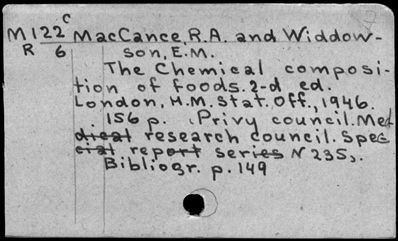 M122c MacCance, R.A. and Widdow-
R 6 son, E.M.
The Chemical composi-
tion of foods. 2-d ed.
London, H.M. Stat. Off., 1946.
156 p. (Privy council. Med
dical research council. Spec
cial report series N 235).
Bibliogr. p. 149